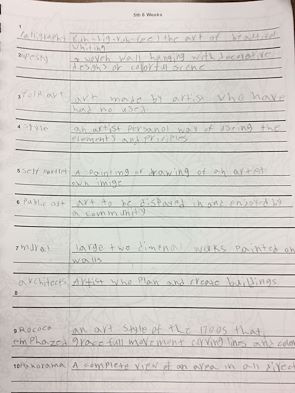 5th 6 Weeks
1
Caligraphy (kuh-lig-ruh-fee) the art of beautiful
writing
2 a woven wall hanging with decorative
designs or colorful scene
3 folk art art made by artist who have
had no
4 style an artist personal way of using the
elements and
5 self an artist
own image
6 Public art art to be in and enjoyed by
a community
7 mural large two works painted on
walls
architects Artist who Plan and create buildings
8
9 Rococo an art style of the 1700s that
emphazed gracefull movement curving lines and
10 Panorama A complete view of an area in all direct